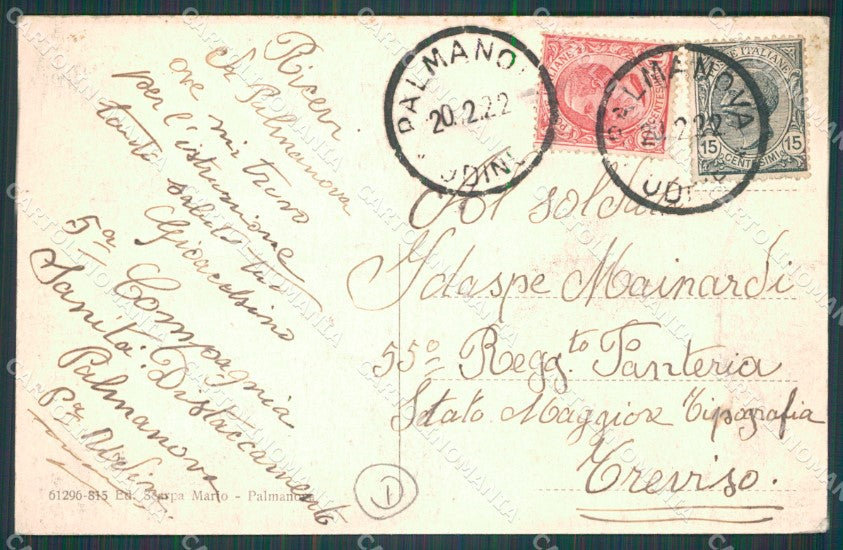 Ricevi
da Palmanova
ove mi trovo
per l'istruzione
tanti saluti tuo
5ª Compagnia
Sanità: Distaccamento
Palmanova
Pz Udine.
61296-815 Ed. Scarpa Mario - Palmanova
PALMANOVA
20.2.22
UDINE
PALMANOVA
20.2.22
UDINE
POSTE ITALIANE
15 CENTESIMI 15
Al soldato
Idaspe Mainardi
55º Regg.to Fanteria
Stato Maggiore Tipografia
Treviso.
1
CARTOLINOMANIA